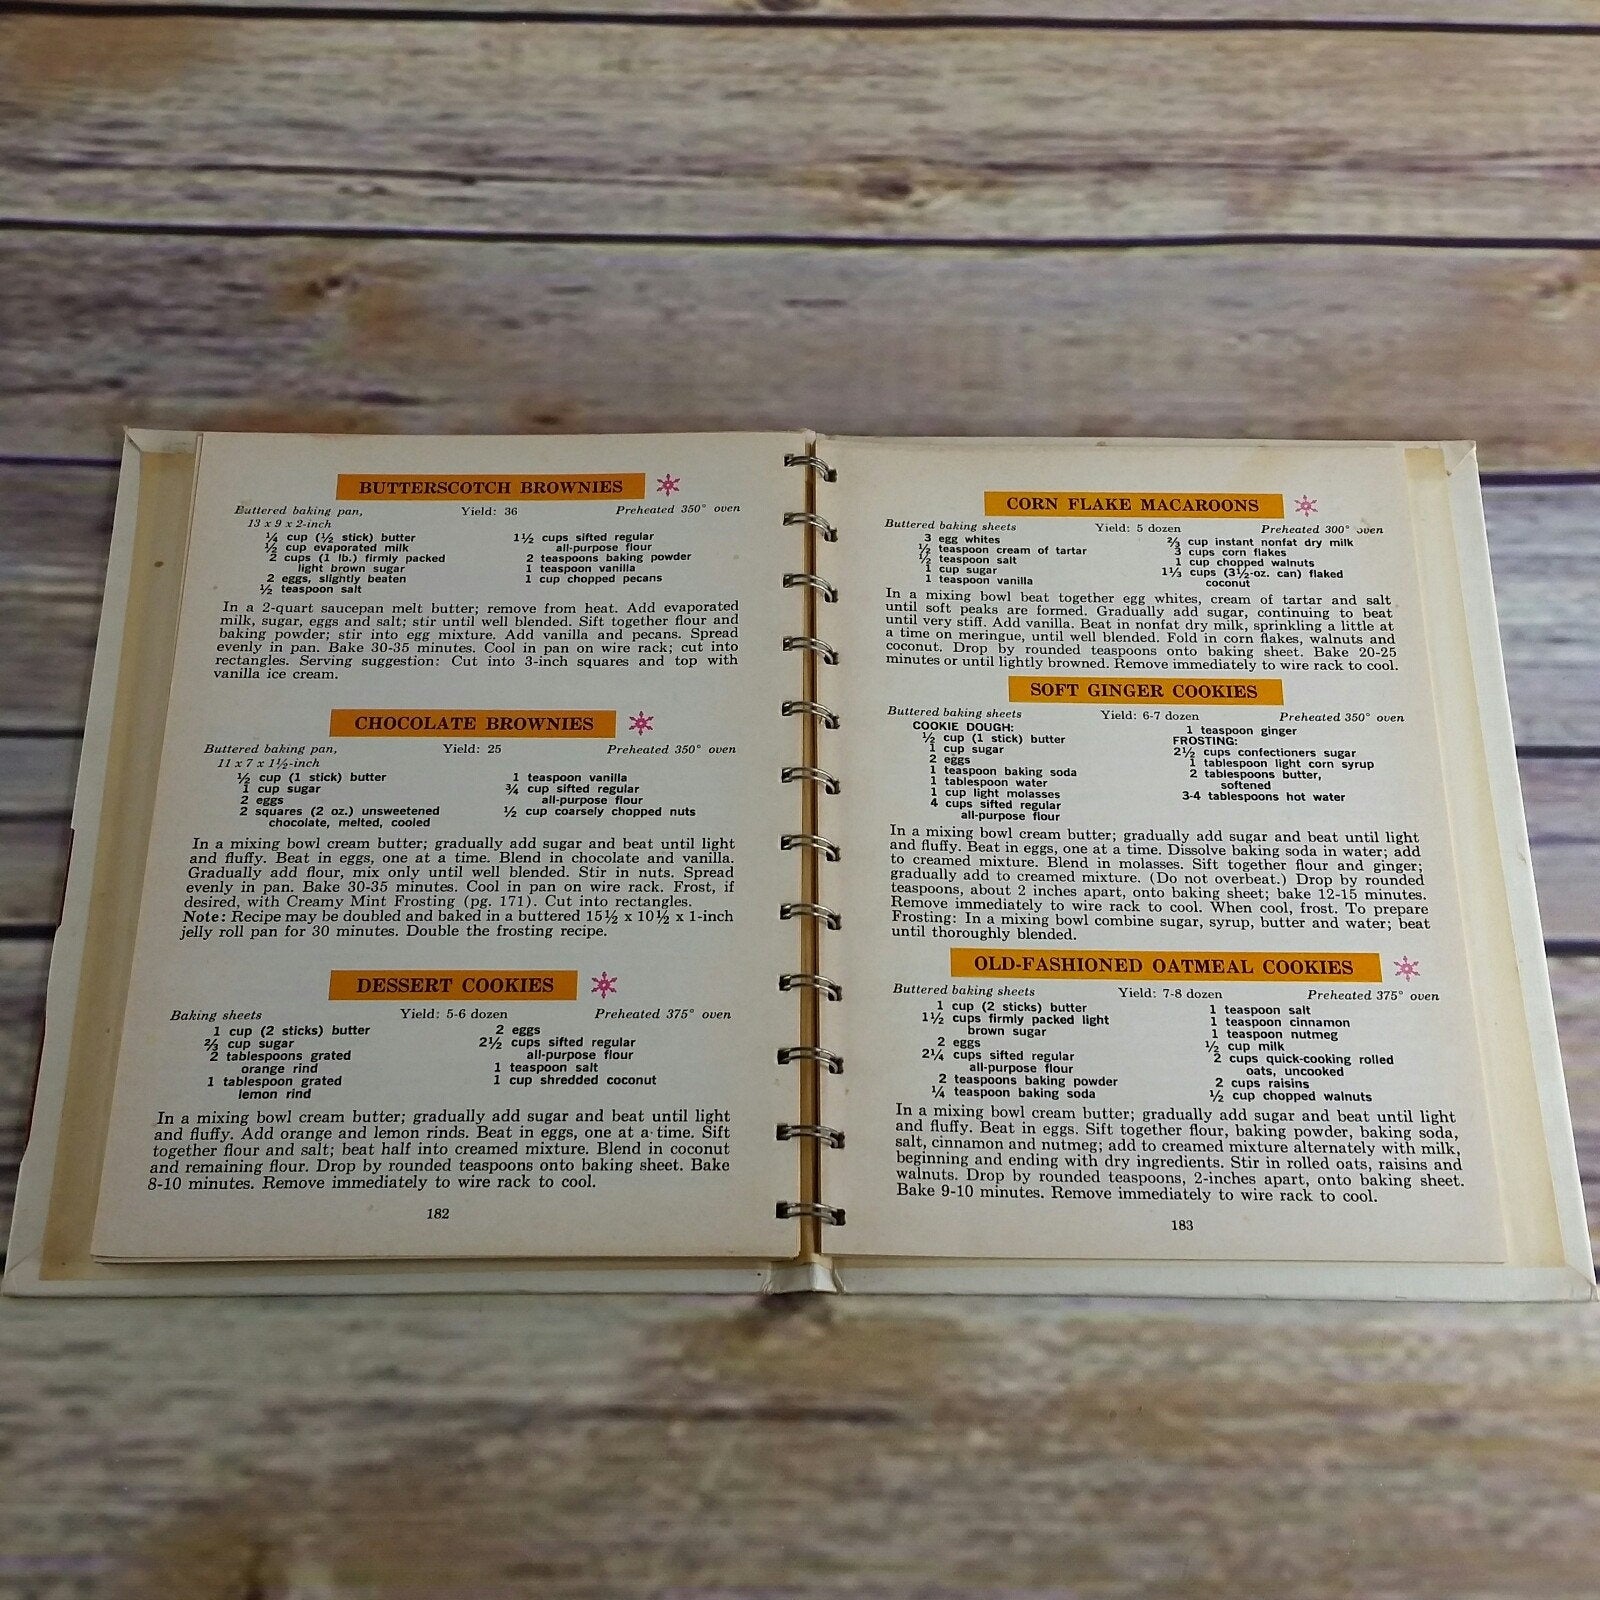 BUTTERSCOTCH BROWNIES
Buttered baking pan, Yield: 36 Preheated 350° oven
13 x 9 x 2-inch
¼ cup (½ stick) butter
½ cup evaporated milk
2 cups (1 lb.) firmly packed
light brown sugar
2 eggs, slightly beaten
½ teaspoon salt
1½ cups sifted regular
all-purpose flour
2 teaspoons baking powder
1 teaspoon vanilla
1 cup chopped pecans
In a 2-quart saucepan melt butter; remove from heat. Add evaporated
milk, sugar, eggs and salt; stir until well blended. Sift together flour and
baking powder; stir into egg mixture. Add vanilla and pecans. Spread
evenly in pan. Bake 30-35 minutes. Cool in pan on wire rack; cut into
rectangles. Serving suggestion: Cut into 3-inch squares and top with
vanilla ice cream.
CHOCOLATE BROWNIES
Buttered baking pan, Yield: 25 Preheated 350° oven
11 x 7 x 1½-inch
½ cup (1 stick) butter
1 cup sugar
2 eggs
2 squares (2 oz.) unsweetened
chocolate, melted, cooled
1 teaspoon vanilla
¾ cup sifted regular
all-purpose flour
½ cup coarsely chopped nuts
In a mixing bowl cream butter; gradually add sugar and beat until light
and fluffy. Beat in eggs, one at a time. Blend in chocolate and vanilla.
Gradually add flour, mix only until well blended. Stir in nuts. Spread
evenly in pan. Bake 30-35 minutes. Cool in pan on wire rack. Frost, if
desired, with Creamy Mint Frosting (pg. 171). Cut into rectangles.
Note: Recipe may be doubled and baked in a buttered 15½ x 10½ x 1-inch
jelly roll pan for 30 minutes. Double the frosting recipe.
DESSERT COOKIES
Baking sheets Yield: 5-6 dozen Preheated 375° oven
1 cup (2 sticks) butter
⅔ cup sugar
2 tablespoons grated
orange rind
1 tablespoon grated
lemon rind
2 eggs
2½ cups sifted regular
all-purpose flour
1 teaspoon salt
1 cup shredded coconut
In a mixing bowl cream butter; gradually add sugar and beat until light
and fluffy. Add orange and lemon rinds. Beat in eggs, one at a time. Sift
together flour and salt; beat half into creamed mixture. Blend in coconut
and remaining flour. Drop by rounded teaspoons onto baking sheet. Bake
8-10 minutes. Remove immediately to wire rack to cool.
182
CORN FLAKE MACAROONS
Buttered baking sheets Yield: 5 dozen Preheated 300° oven
3 egg whites
½ teaspoon cream of tartar
½ teaspoon salt
1 cup sugar
1 teaspoon vanilla
⅔ cup instant nonfat dry milk
3 cups corn flakes
1 cup chopped walnuts
1⅓ cups (3½-oz. can) flaked
coconut
In a mixing bowl beat together egg whites, cream of tartar and salt
until soft peaks are formed. Gradually add sugar, continuing to beat
until very stiff. Add vanilla. Beat in nonfat dry milk, sprinkling a little at
a time on meringue, until well blended. Fold in corn flakes, walnuts and
coconut. Drop by rounded teaspoons onto baking sheet. Bake 20-25
minutes or until lightly browned. Remove immediately to wire rack to cool.
SOFT GINGER COOKIES
Buttered baking sheets Yield: 6-7 dozen Preheated 350° oven
COOKIE DOUGH:
½ cup (1 stick) butter
1 cup sugar
2 eggs
1 teaspoon baking soda
1 tablespoon water
1 cup light molasses
4 cups sifted regular
all-purpose flour
1 teaspoon ginger
FROSTING:
2½ cups confectioners sugar
1 tablespoon light corn syrup
2 tablespoons butter,
softened
3-4 tablespoons hot water
In a mixing bowl cream butter; gradually add sugar and beat until light
and fluffy. Beat in eggs, one at a time. Dissolve baking soda in water; add
to creamed mixture. Blend in molasses. Sift together flour and ginger;
gradually add to creamed mixture. (Do not overbeat.) Drop by rounded
teaspoons, about 2 inches apart, onto baking sheet; bake 12-15 minutes.
Remove immediately to wire rack to cool. When cool, frost. To prepare
Frosting: In a mixing bowl combine sugar, syrup, butter and water; beat
until thoroughly blended.
OLD-FASHIONED OATMEAL COOKIES
Buttered baking sheets Yield: 7-8 dozen Preheated 375° oven
1 cup (2 sticks) butter
1½ cups firmly packed light
brown sugar
2 eggs
2¼ cups sifted regular
all-purpose flour
2 teaspoons baking powder
¼ teaspoon baking soda
1 teaspoon salt
1 teaspoon cinnamon
1 teaspoon nutmeg
½ cup milk
2 cups quick-cooking rolled
oats, uncooked
2 cups raisins
½ cup chopped walnuts
In a mixing bowl cream butter; gradually add sugar and beat until light
and fluffy. Beat in eggs. Sift together flour, baking powder, baking soda,
salt, cinnamon and nutmeg; add to creamed mixture alternately with milk,
beginning and ending with dry ingredients. Stir in rolled oats, raisins and
walnuts. Drop by rounded teaspoons, 2-inches apart, onto baking sheet.
Bake 9-10 minutes. Remove immediately to wire rack to cool.
183